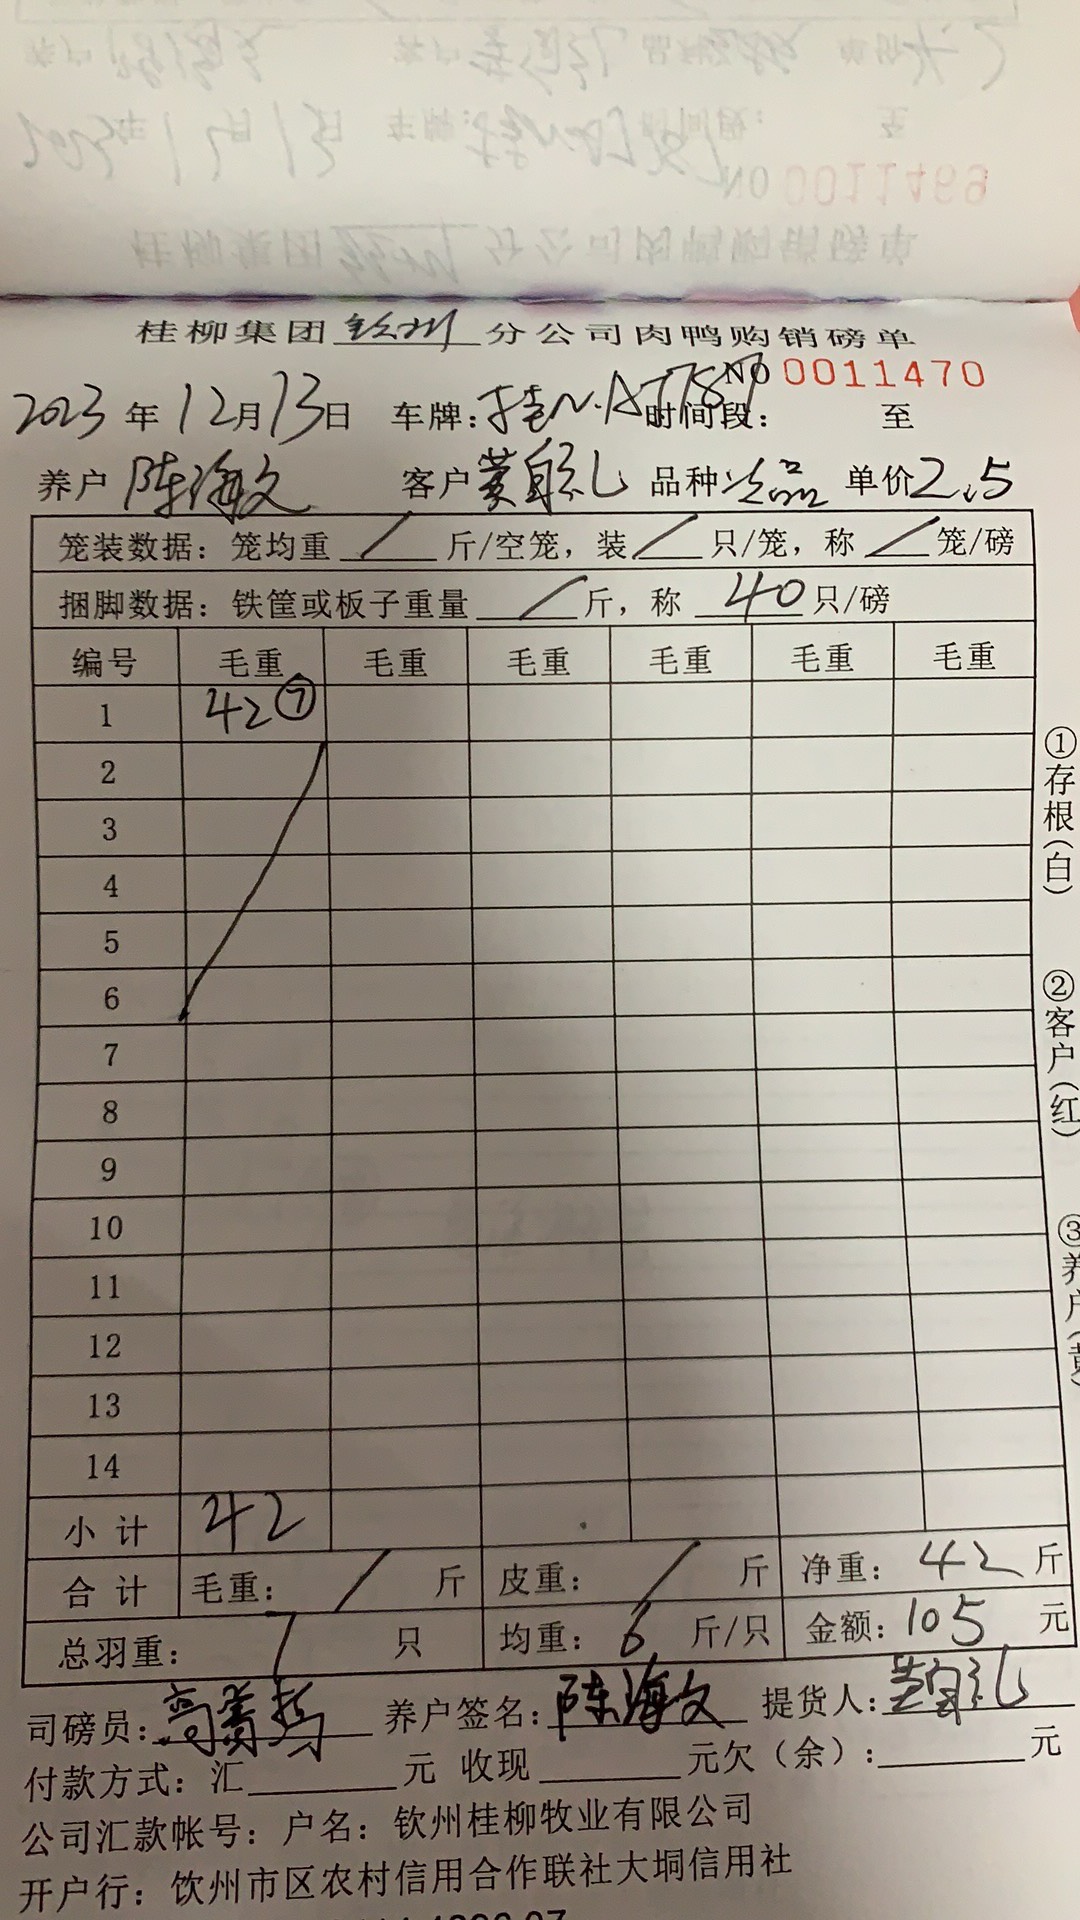 NO 0011469
桂柳集团钦州分公司肉鸭购销磅单
NO 0011470
2023年12月13日 车牌:桂N.AT787 时间段: 至
养户 陈海文 客户 品种 次品 单价 2.5
笼装数据:笼均重 / 斤/空笼,装 / 只/笼,称 / 笼/磅
捆脚数据:铁筐或板子重量 / 斤,称 40 只/磅
编号 毛重 毛重 毛重 毛重 毛重 毛重
1 42 ⑦
2
3
4
5
6
7
8
9
10
11
12
13
14
小计 42
合计 毛重: / 斤 皮重: / 斤 净重: 42 斤
总羽重: 7 只 均重: 6 斤/只 金额: 105 元
司磅员: 养户签名:陈海文 提货人:
付款方式:汇 元 收现 元欠(余): 元
公司汇款帐号:户名:钦州桂柳牧业有限公司
开户行:饮州市区农村信用合作联社大垌信用社
①存根(白)
②客户(红)
③养户(黄)